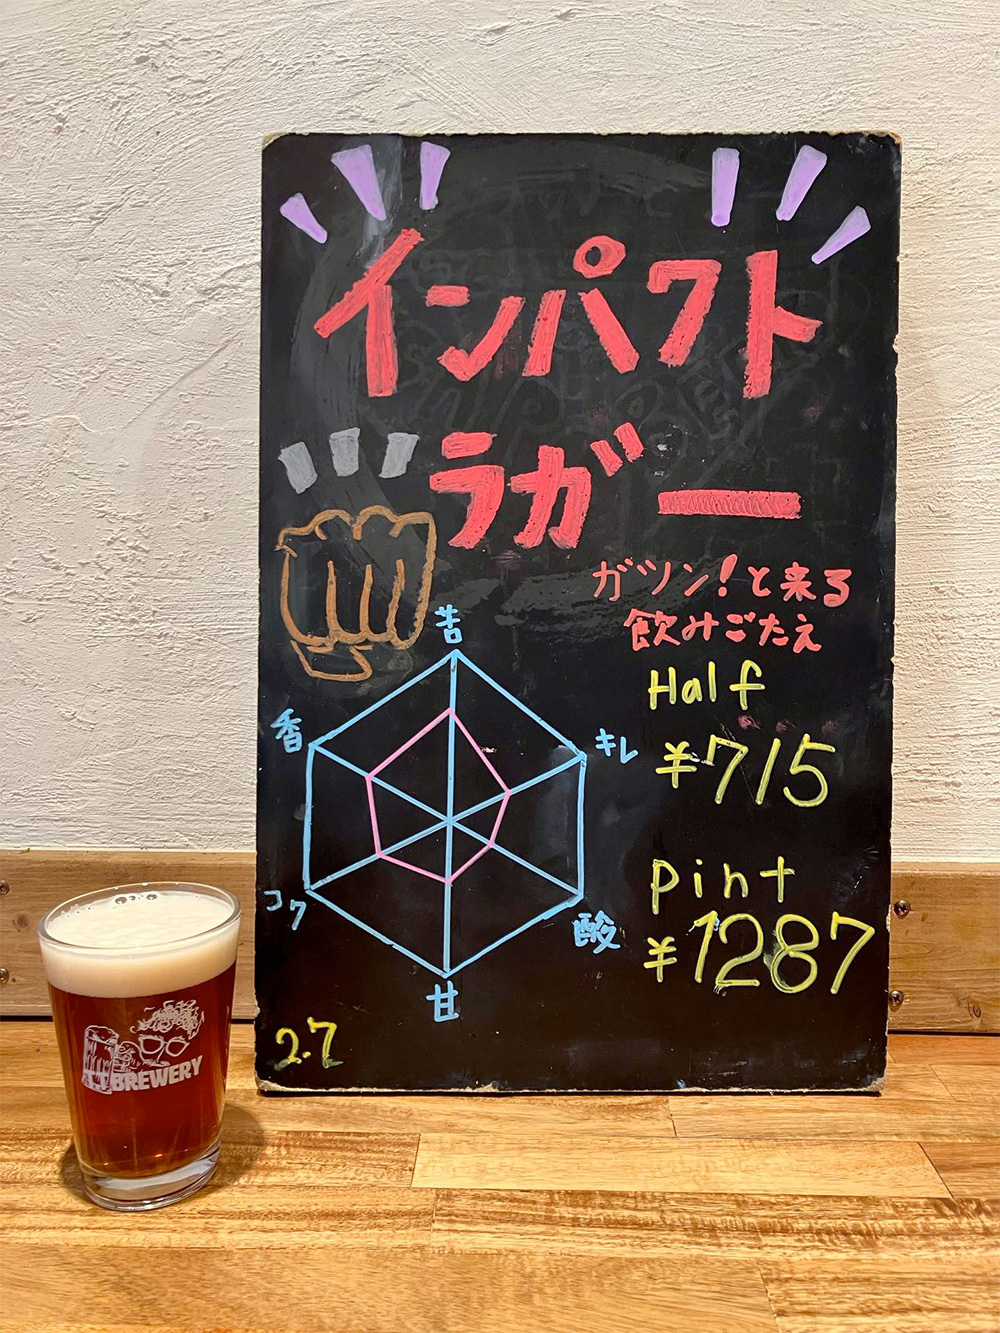 インパクト
ラガー
ガツン!と来る
飲みごたえ
Half
¥715
pint
¥1287
苦
香
キレ
コク
酸
甘
2.7
BREWERY